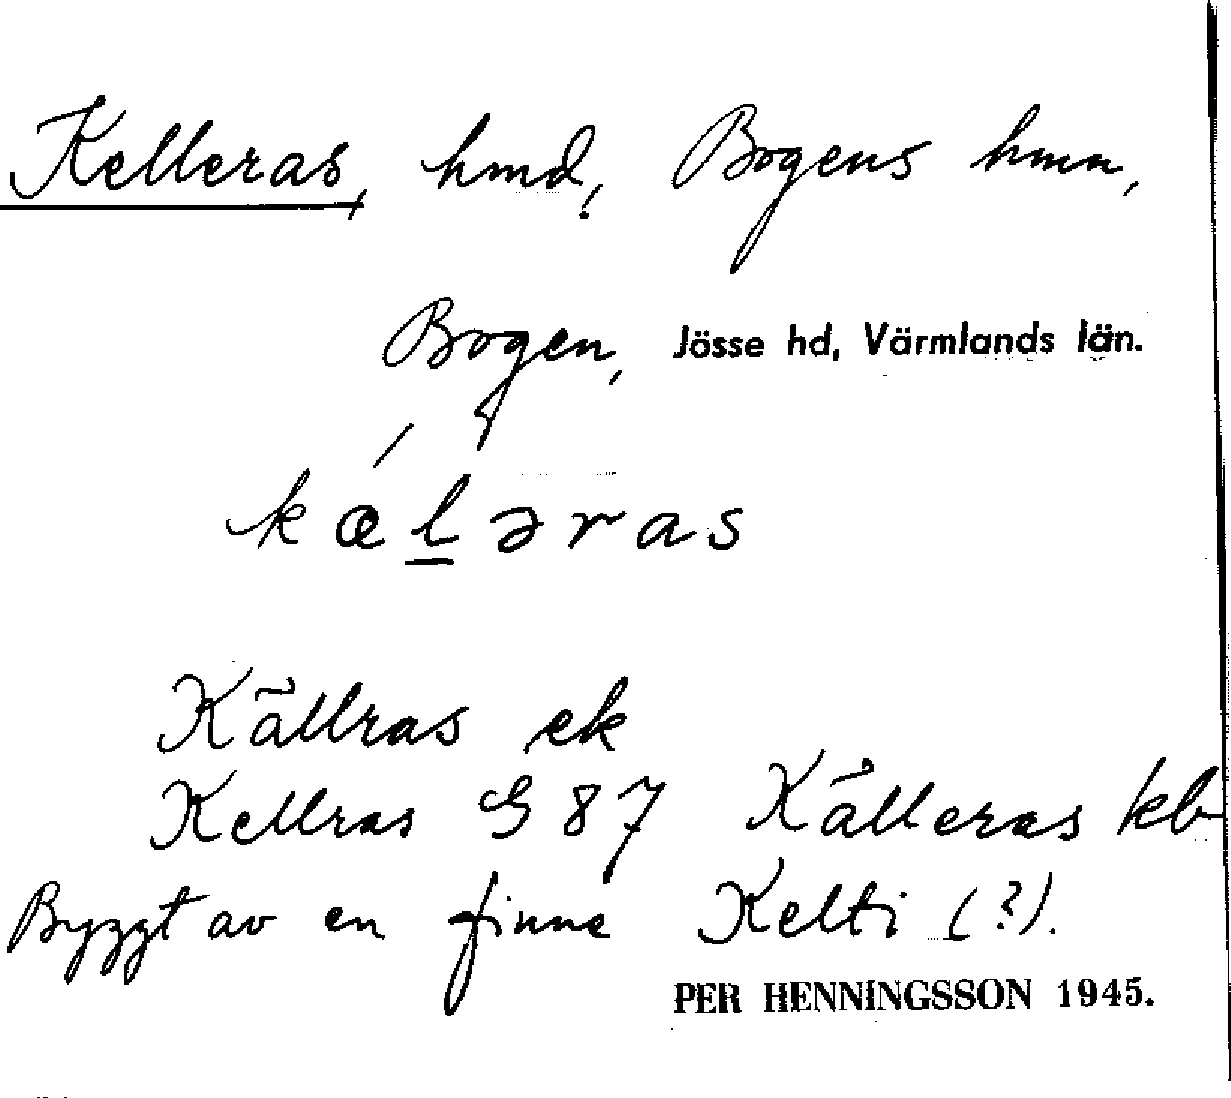 Kelleras, hmd, Bogens hmn,
Bogen, Jösse hd, Värmlands län.
kæləras
Källras ek
Kellras G 87 Källeras kb
Byggt av en finne Kelti (?).
PER HENNINGSSON 1945.